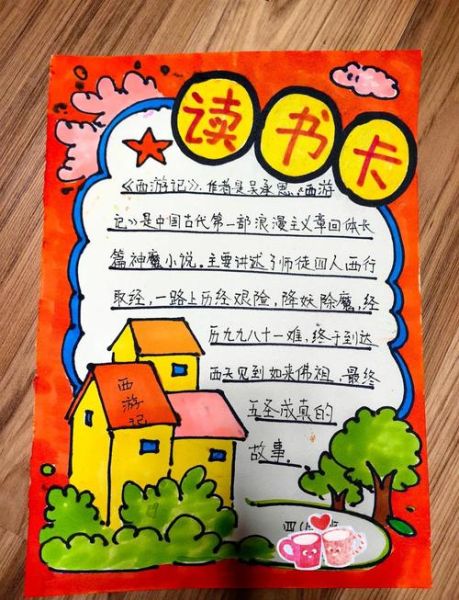 读书卡
《西游记》,作者是吴承恩,《西游
记》是中国古代第一部浪漫主义章回体长
篇神魔小说。主要讲述了师徒四人西行
取经,一路上历经艰险,降妖除魔,经
历九九八十一难,终于到达
西天见到如来佛祖,最终
五圣成真的
故事。
西游记